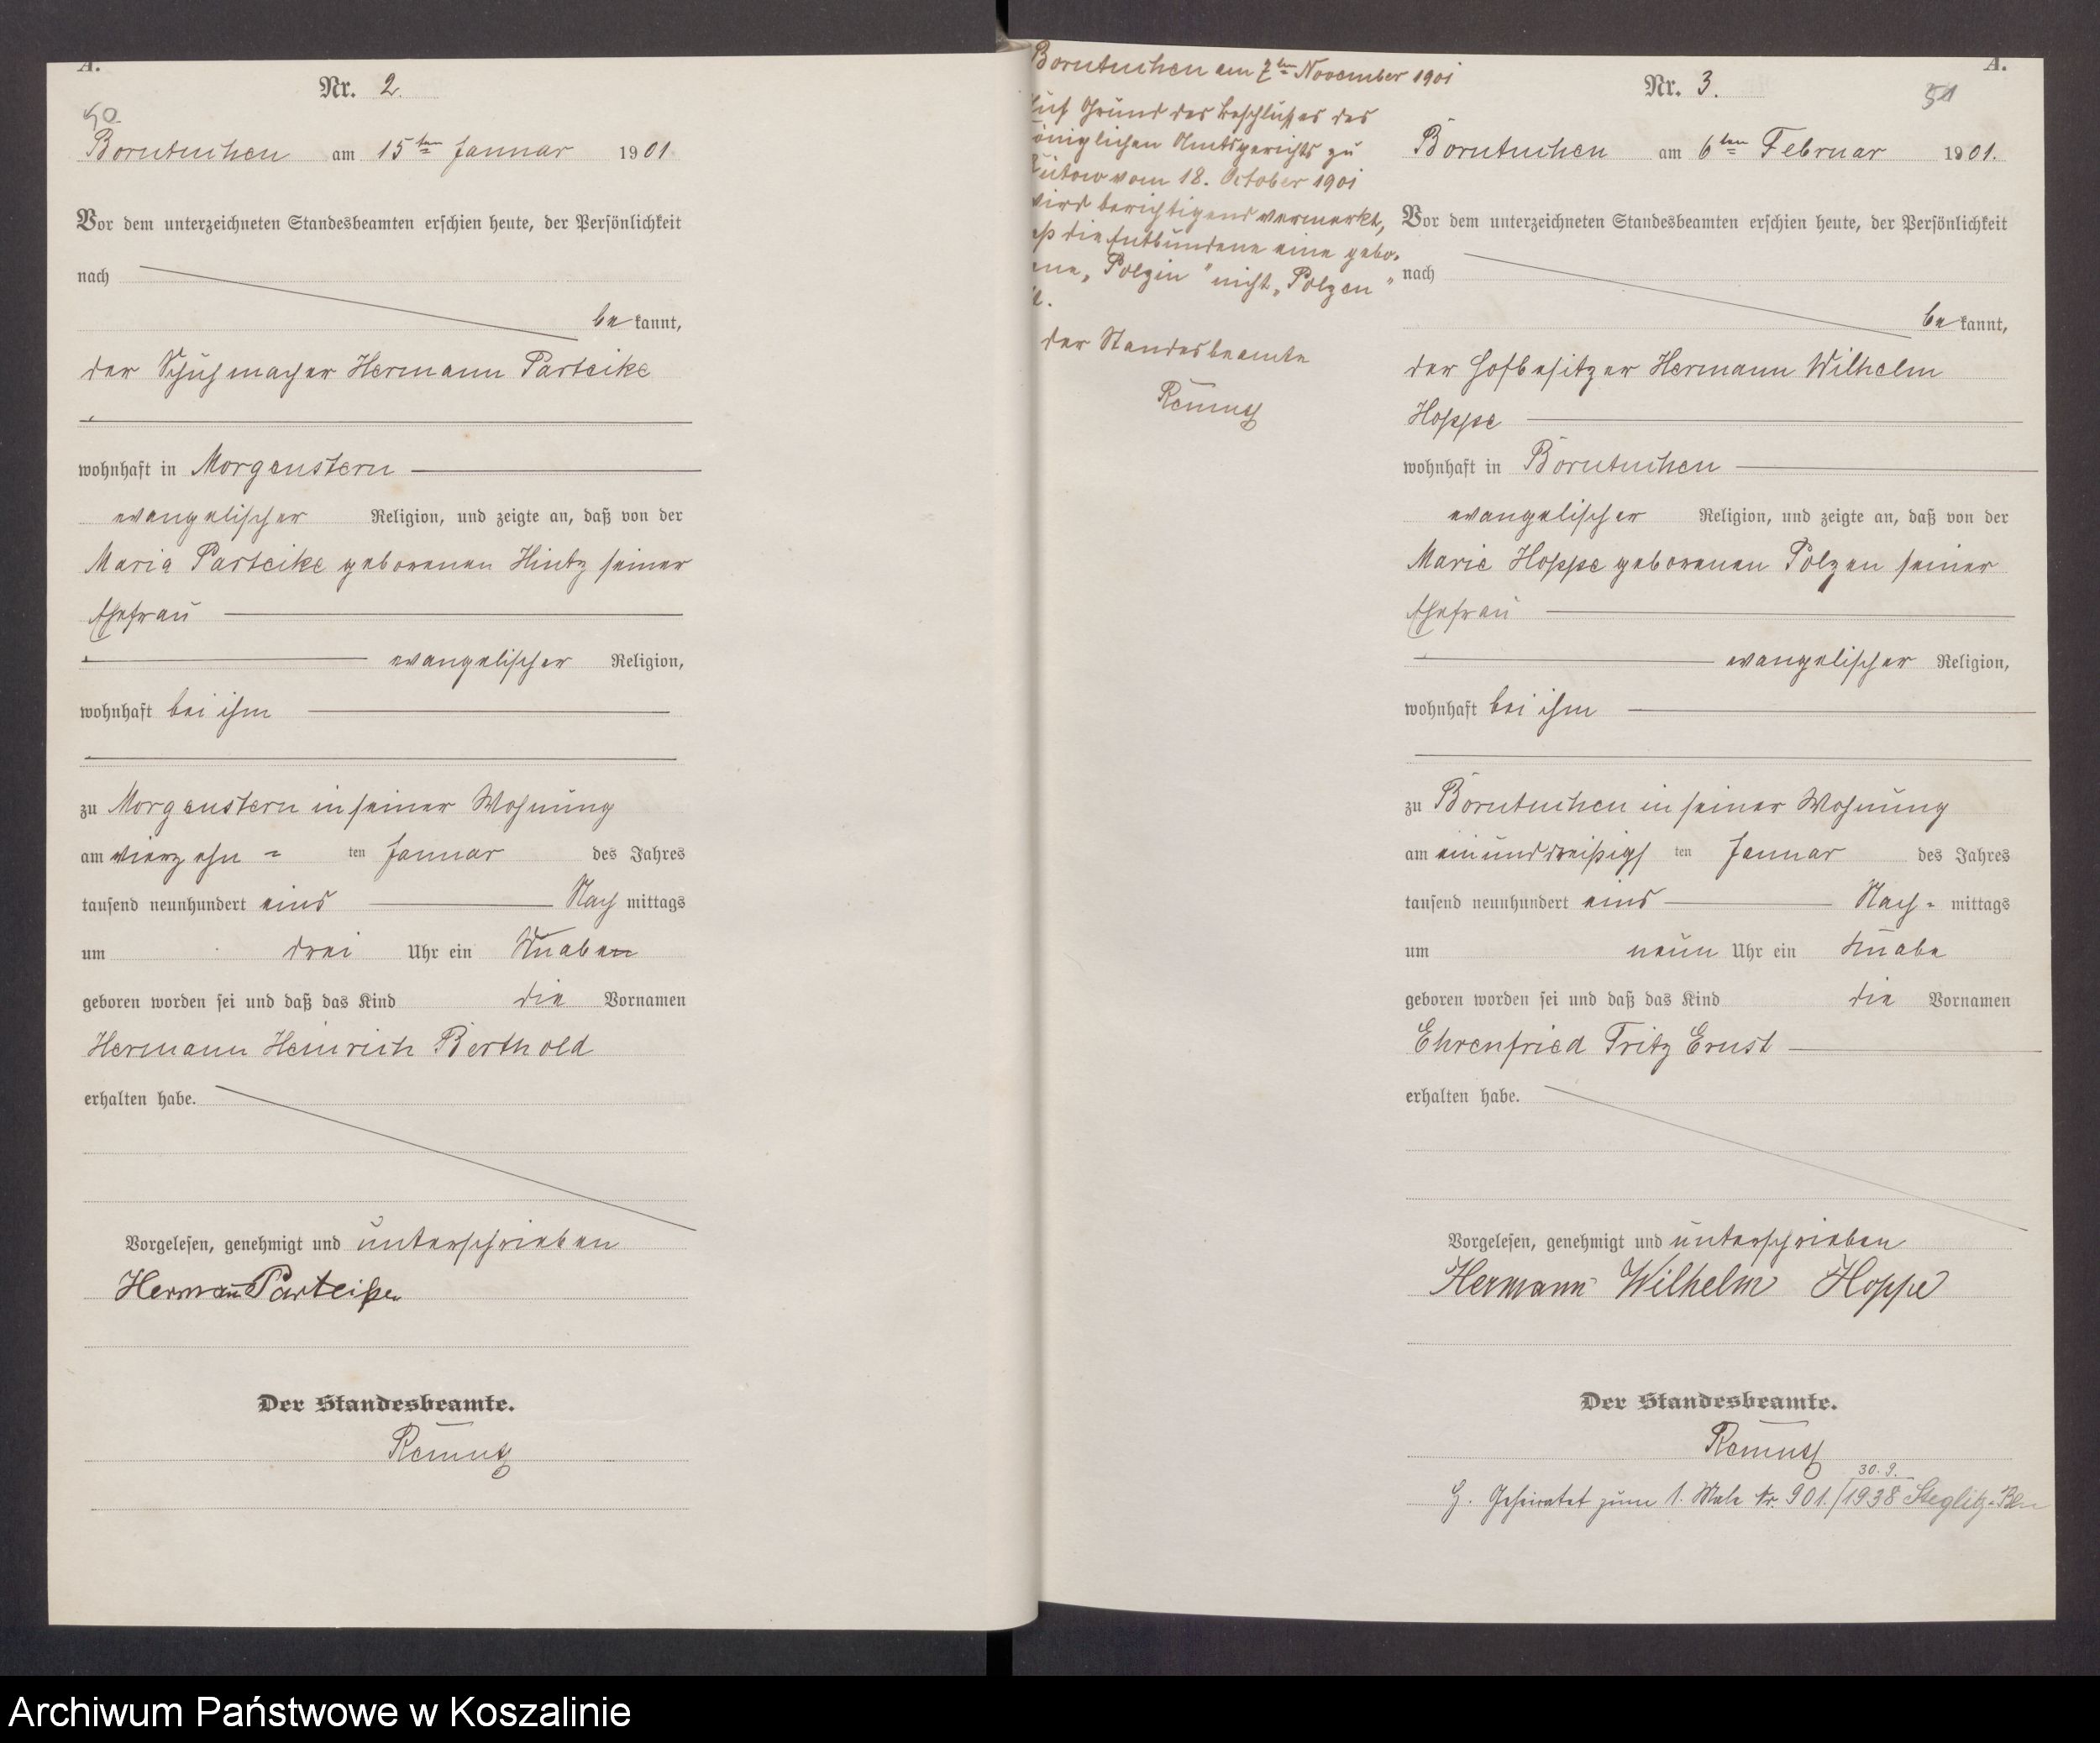 A.
Nr. 2.
50
Borntuchen am 15ten Januar 1901
Vor dem unterzeichneten Standesbeamten erschien heute, der Persönlichkeit
nach
bekannt,
der Schuhmacher Hermann Parteike
wohnhaft in Morgenstern
evangelischer Religion, und zeigte an, daß von der
Maria Parteike geborenen Hintz seiner
Ehefrau
evangelischer Religion,
wohnhaft bei ihm
zu Morgenstern in seiner Wohnung
am vierzehn = ten Januar des Jahres
tausend neunhundert eins Nach mittags
um drei Uhr ein Knaben
geboren worden sei und daß das Kind die Vornamen
Hermann Heinrich Berthold
erhalten habe.
Vorgelesen, genehmigt und unterschrieben
Hermann
Der Standesbeamte.
Borntuchen am 7ten November 1901
Auf Grund des Beschlusses des
Königlichen Amtsgerichts zu
Bütow vom 18. October 1901
wird berichtigend vermerkt,
daß die Entbundene eine gebo-
rene „Polzin" nicht „Polzen"
der Standesbeamte
A.
Nr. 3.
51
Borntuchen am 6ten Februar 1901.
Vor dem unterzeichneten Standesbeamten erschien heute, der Persönlichkeit
nach
bekannt,
der Hofbesitzer Hermann Wilhelm
Hoppe
wohnhaft in Borntuchen
evangelischer Religion, und zeigte an, daß von der
Marie Hoppe geborenen Polzen seiner
Ehefrau
evangelischer Religion,
wohnhaft bei ihm
zu Borntuchen in seiner Wohnung
am einunddreißigs ten Januar des Jahres
tausend neunhundert eins Nach = mittags
um neun Uhr ein Knabe
geboren worden sei und daß das Kind die Vornamen
Ehrenfried Fritz Ernst
erhalten habe.
Vorgelesen, genehmigt und unterschrieben
Hermann Wilhelm Hoppe
Der Standesbeamte.
30. 9.
Geheiratet zum 1. Male Nr. 901./1938 Steglitz-Bln
Archiwum Państwowe w Koszalinie